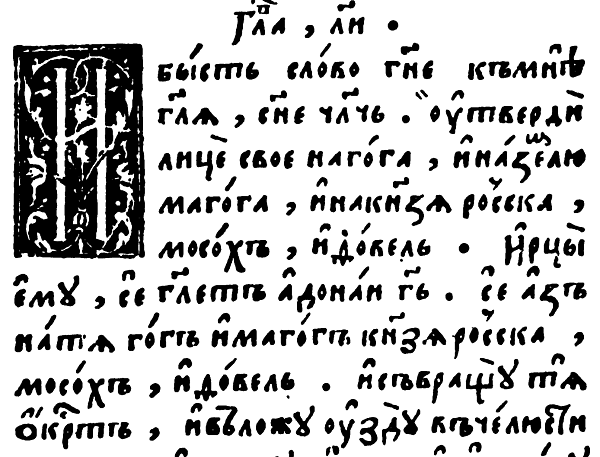 Гл҃а , л҃и .
И бы́сть сло́во гн҃е къмнѣ̀
гл҃ѧ , сн҃е чл҃чь . ѹ҆твердѝ
лицѐ свое наго́га , и҆на́ꙁеⷨлю
маго́га , и҆накн҃ꙁѧ росска ,
мосо́хъ , и҆до́вель . И҆рцы̀
є҆мꙋ , сѐ гл҃етъ а҆дона́и гь҃ . сѐ а҆́ꙁъ
на́тѧ го́гъ и҆маго́гъ кн҃ꙁѧ росска ,
мосо́хъ , и҆до́вель . и҆съвращꙋ̀ тѧ̀
ѻ҆́крⷭтъ , и҆въложꙋ ѹ҆ꙁдꙋ̀ въче́люсти